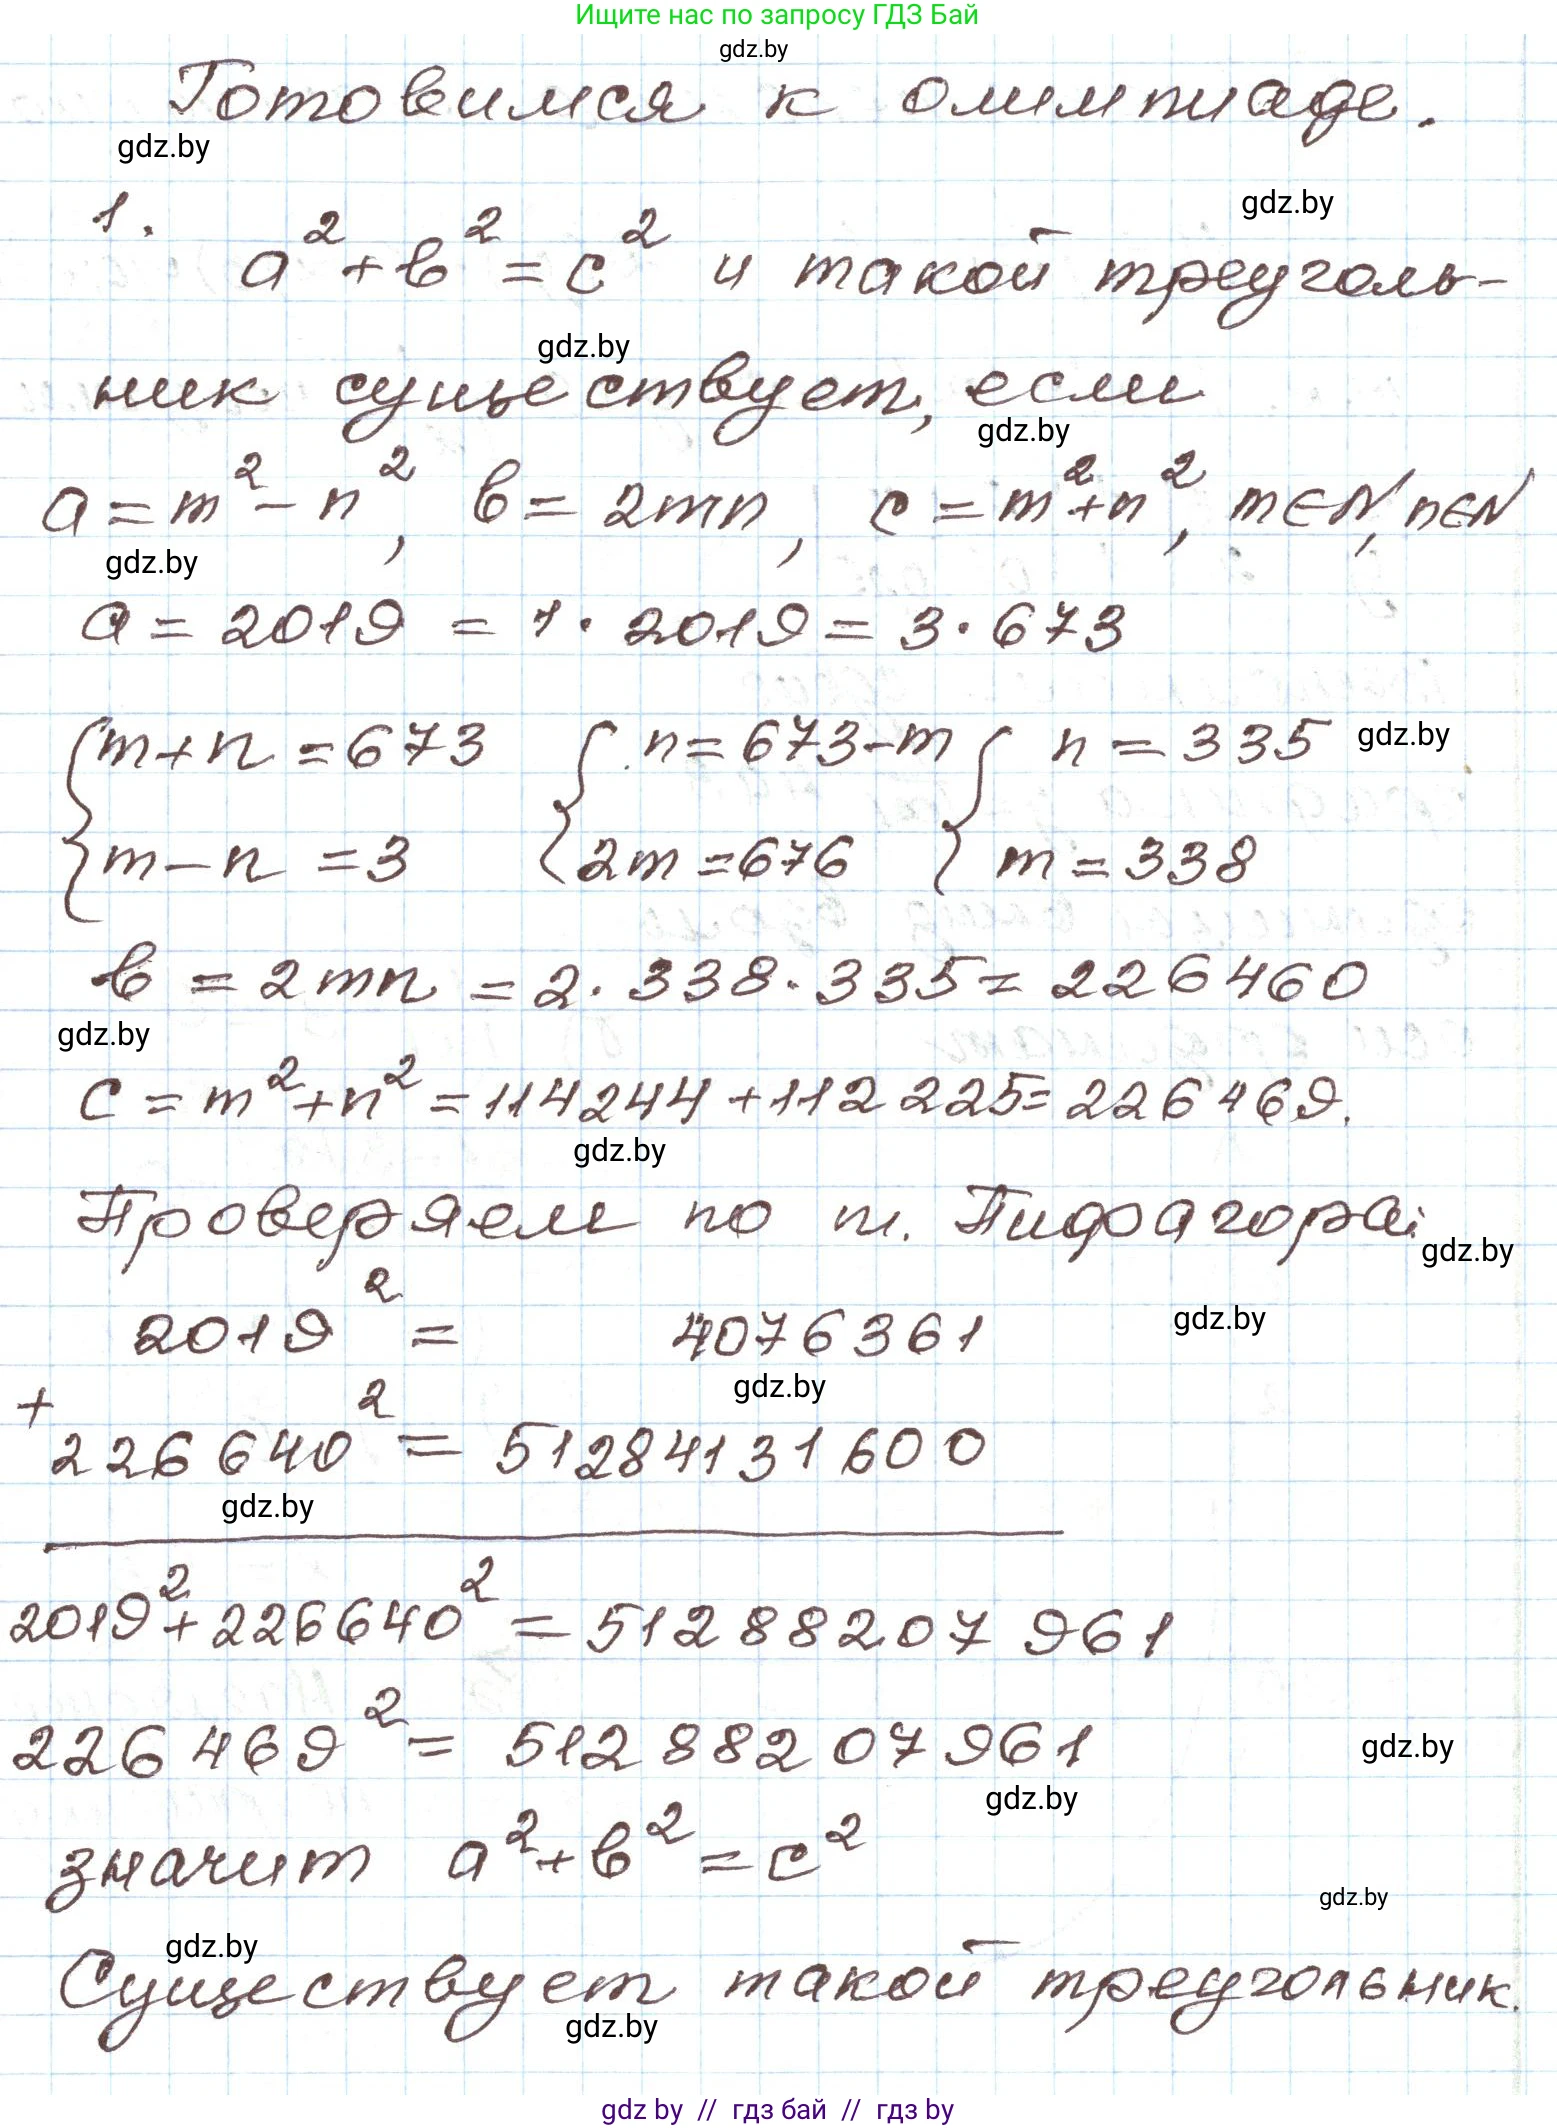 Ищите нас по запросу ГДЗ Бай
gdz.by
Готовимся к олимпиаде.
gdz.by
gdz.by
1. a² + b² = c² и такой треуголь-
gdz.by
ник существует, если
gdz.by
a = m² - n², b = 2mn, c = m² + n², m∈N, n∈N
gdz.by
a = 2019 = 1 · 2019 = 3 · 673
{ m + n = 673 { n = 673 - m { n = 335
gdz.by
{ m - n = 3 { 2m = 676 { m = 338
b = 2mn = 2 · 338 · 335 = 226460
gdz.by
c = m² + n² = 114244 + 112225 = 226469.
gdz.by
Проверяем по т. Пифагора:
gdz.by
2019² = 4076361
gdz.by
gdz.by
+ 226640² = 51284131600
gdz.by
2019² + 226640² = 51288207961
226469² = 51288207961
gdz.by
gdz.by
значит a² + b² = c²
gdz.by
gdz.by
Существует такой треугольник.
gdz.by
gdz by // гдз бай // gdz by